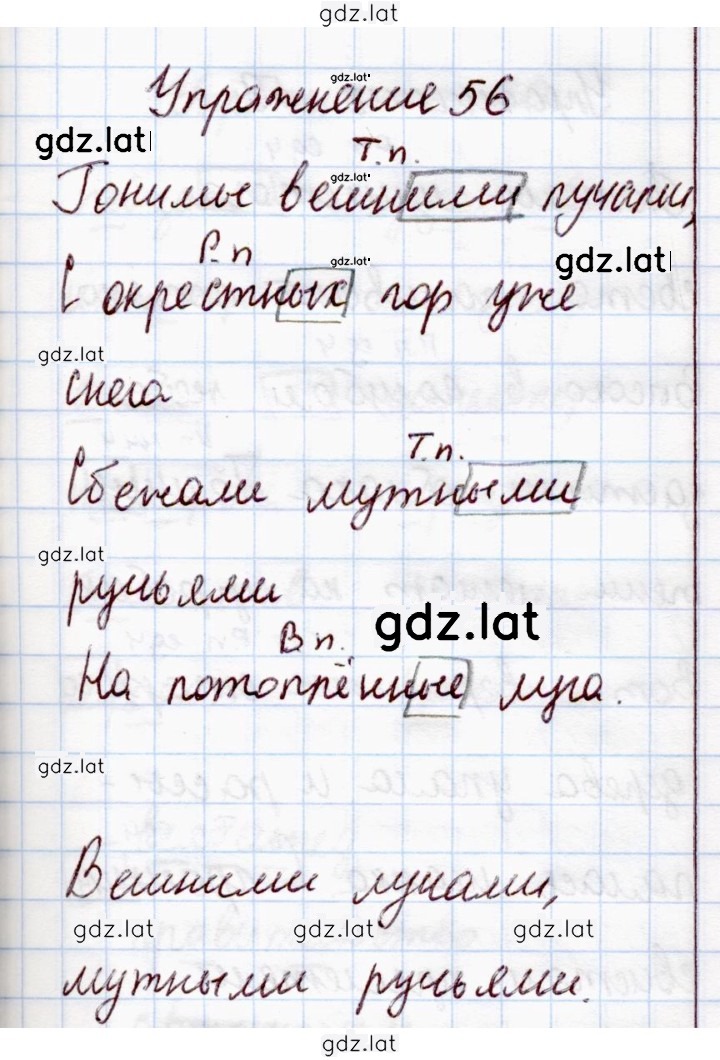 gdz.lat
gdz.lat
Упражнение 56
gdz.lat
Т.п.
gdz.lat
Гонимы вешними лучами,
Р.п
gdz.lat
gdz.lat
С окрестных гор уже
gdz.lat
снега
Т.п.
Сбежали мутными
gdz.lat
ручьями
gdz.lat
В п.
На потоплённые луга.
gdz.lat
Вешними лучами,
gdz.lat gdz.lat gdz.lat
мутными ручьями.
gdz.lat